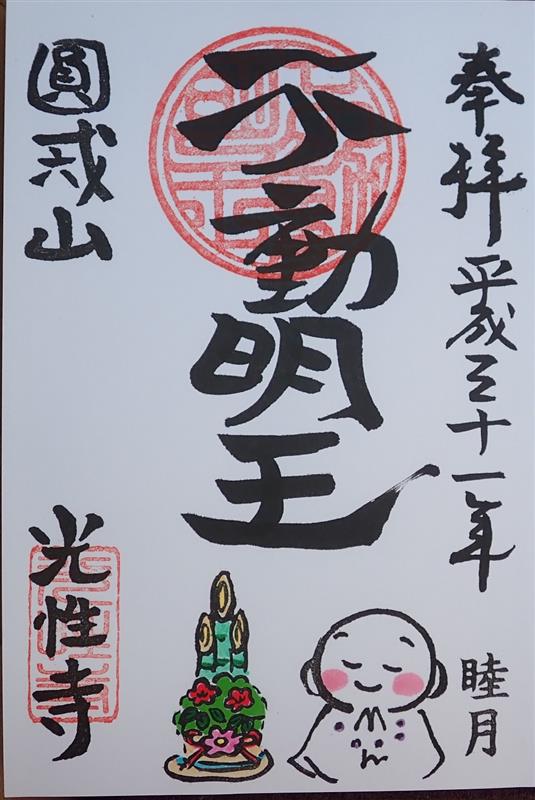 奉拝 平成三十一年
睦月
不動明王
圓戒山
光性寺